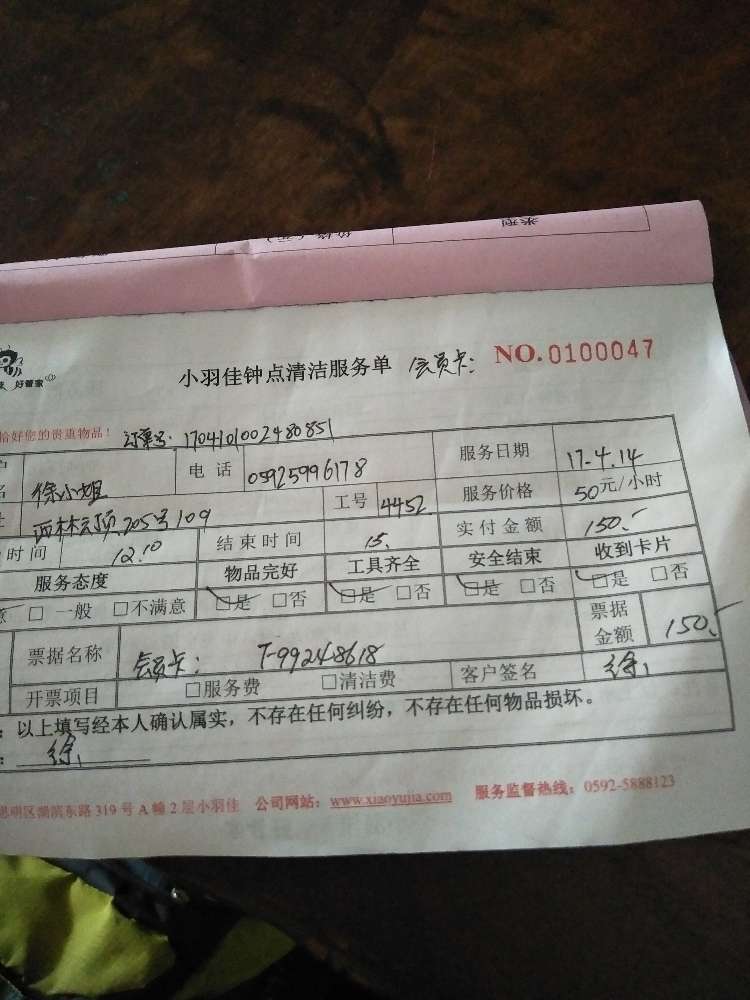 类型
小羽佳钟点清洁服务单 会员卡: NO.0100047
好管家
恰好您的贵重物品! 订单号: 1704101002480851
徐小姐 电话 05925996178 服务日期 17-4.14
205号109 工号 4452 服务价格 50元/小时
时间 12.10 结束时间 15. 实付金额 150.-
服务态度 物品完好 工具齐全 安全结束 收到卡片
□ 一般 □不满意 □是 □否 □是 □否 □是 □否 □是 □否
票据名称 会员卡: T-99248618 票据金额 150.-
开票项目 □服务费 □清洁费 客户签名 徐
: 以上填写经本人确认属实,不存在任何纠纷,不存在任何物品损坏。
: 徐
思明区湖滨东路 319 号 A 幢 2 层小羽佳 公司网站: www.xiaoyujia.com 服务监督热线: 0592-5888123